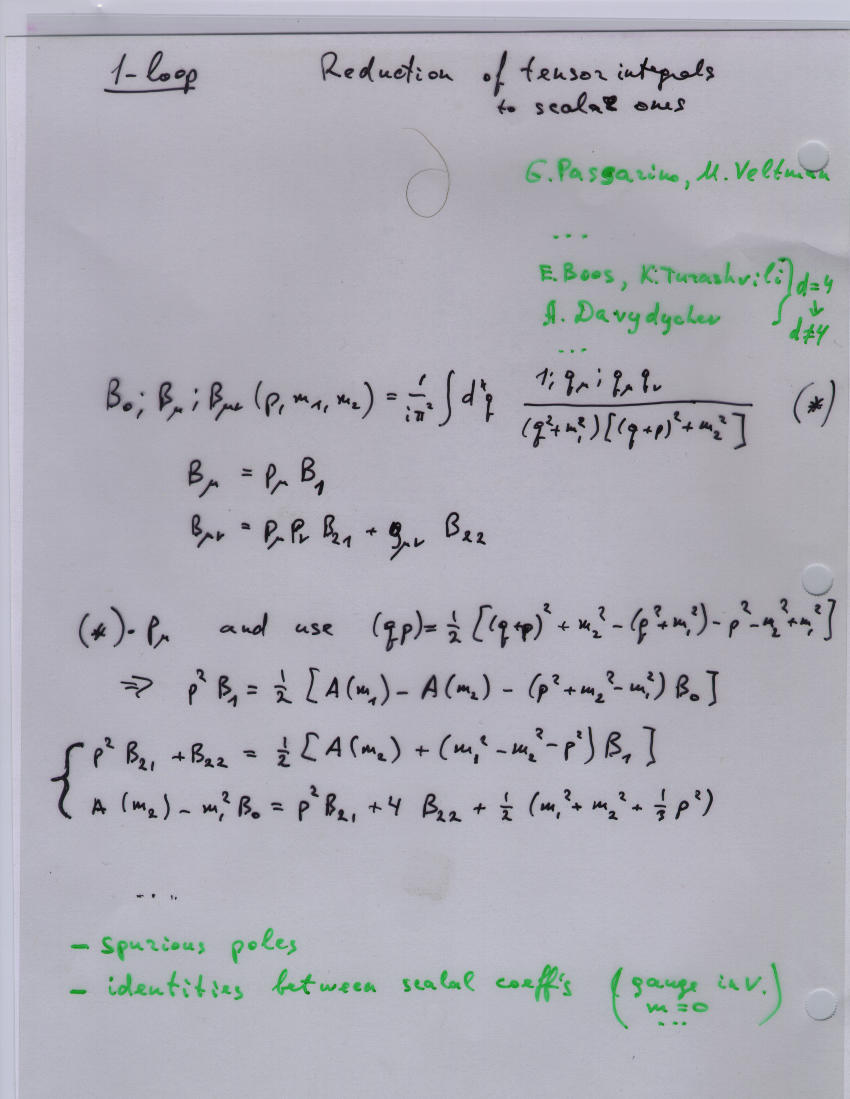 1-loop Reduction of tensor integrals
to scalar ones
G. Passarino, M. Veltman
...
E. Boos, K. Turashvili } d=4
↓
A. Davydychev d≠4
...
B₀; B_μ; B_μν (p, m₁, m₂) = 1/(iπ²) ∫ d⁴q (1; q_μ; q_μ q_ν) / ((q²+m₁²)[(q+p)²+m₂²]) (*)
B_μ = p_μ B₁
B_μν = p_μ p_ν B₂₁ + g_μν B₂₂
(*)·p_μ and use (qp) = ½ [(q+p)² + m₂² - (q²+m₁²) - p² - m₂² + m₁²]
⇒ p² B₁ = ½ [A(m₁) - A(m₂) - (p²+m₂²-m₁²) B₀]
{ p² B₂₁ + B₂₂ = ½ [A(m₂) + (m₁² - m₂² - p²) B₁]
A(m₂) - m₁² B₀ = p² B₂₁ + 4 B₂₂ + ½ (m₁² + m₂² + ⅓ p²)
....
- spurious poles
- identities between scalal coeff's (gauge inv.
m=0
...)